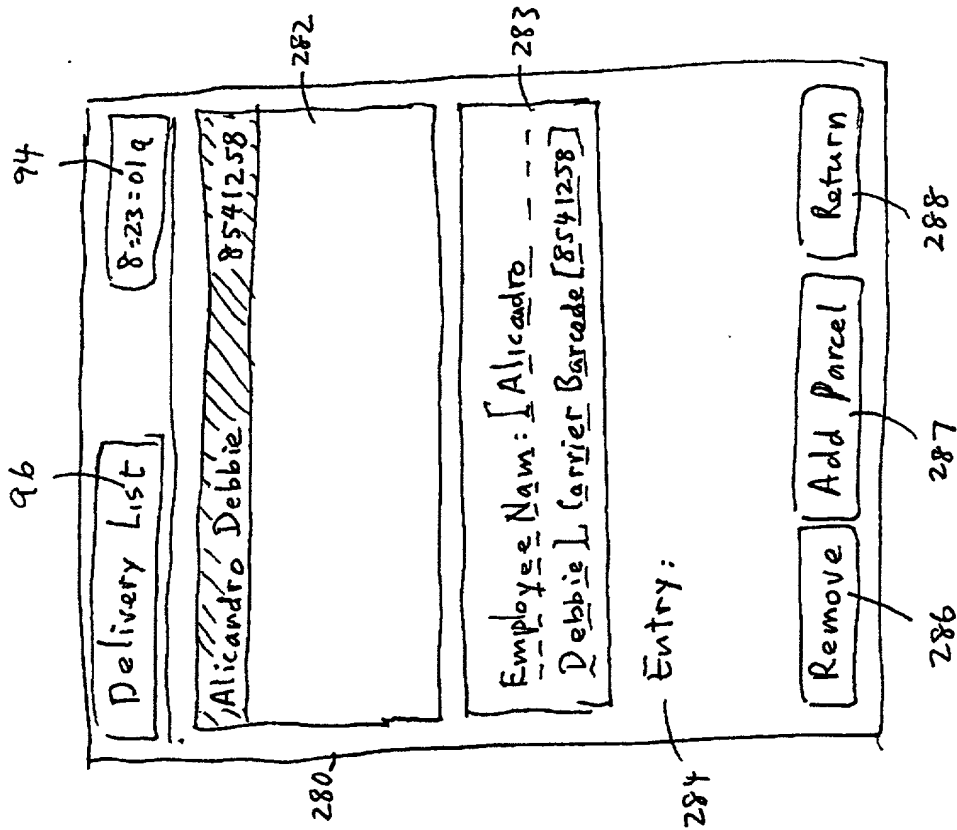 96 94
Delivery List 8:23:01a
Alicandro Debbie 8541258
282
280
Employee Nam: [Alicandro
Debbie] Carrier Barcode [8541258]
283
Entry:
284
Remove Add Parcel Return
286 287 288